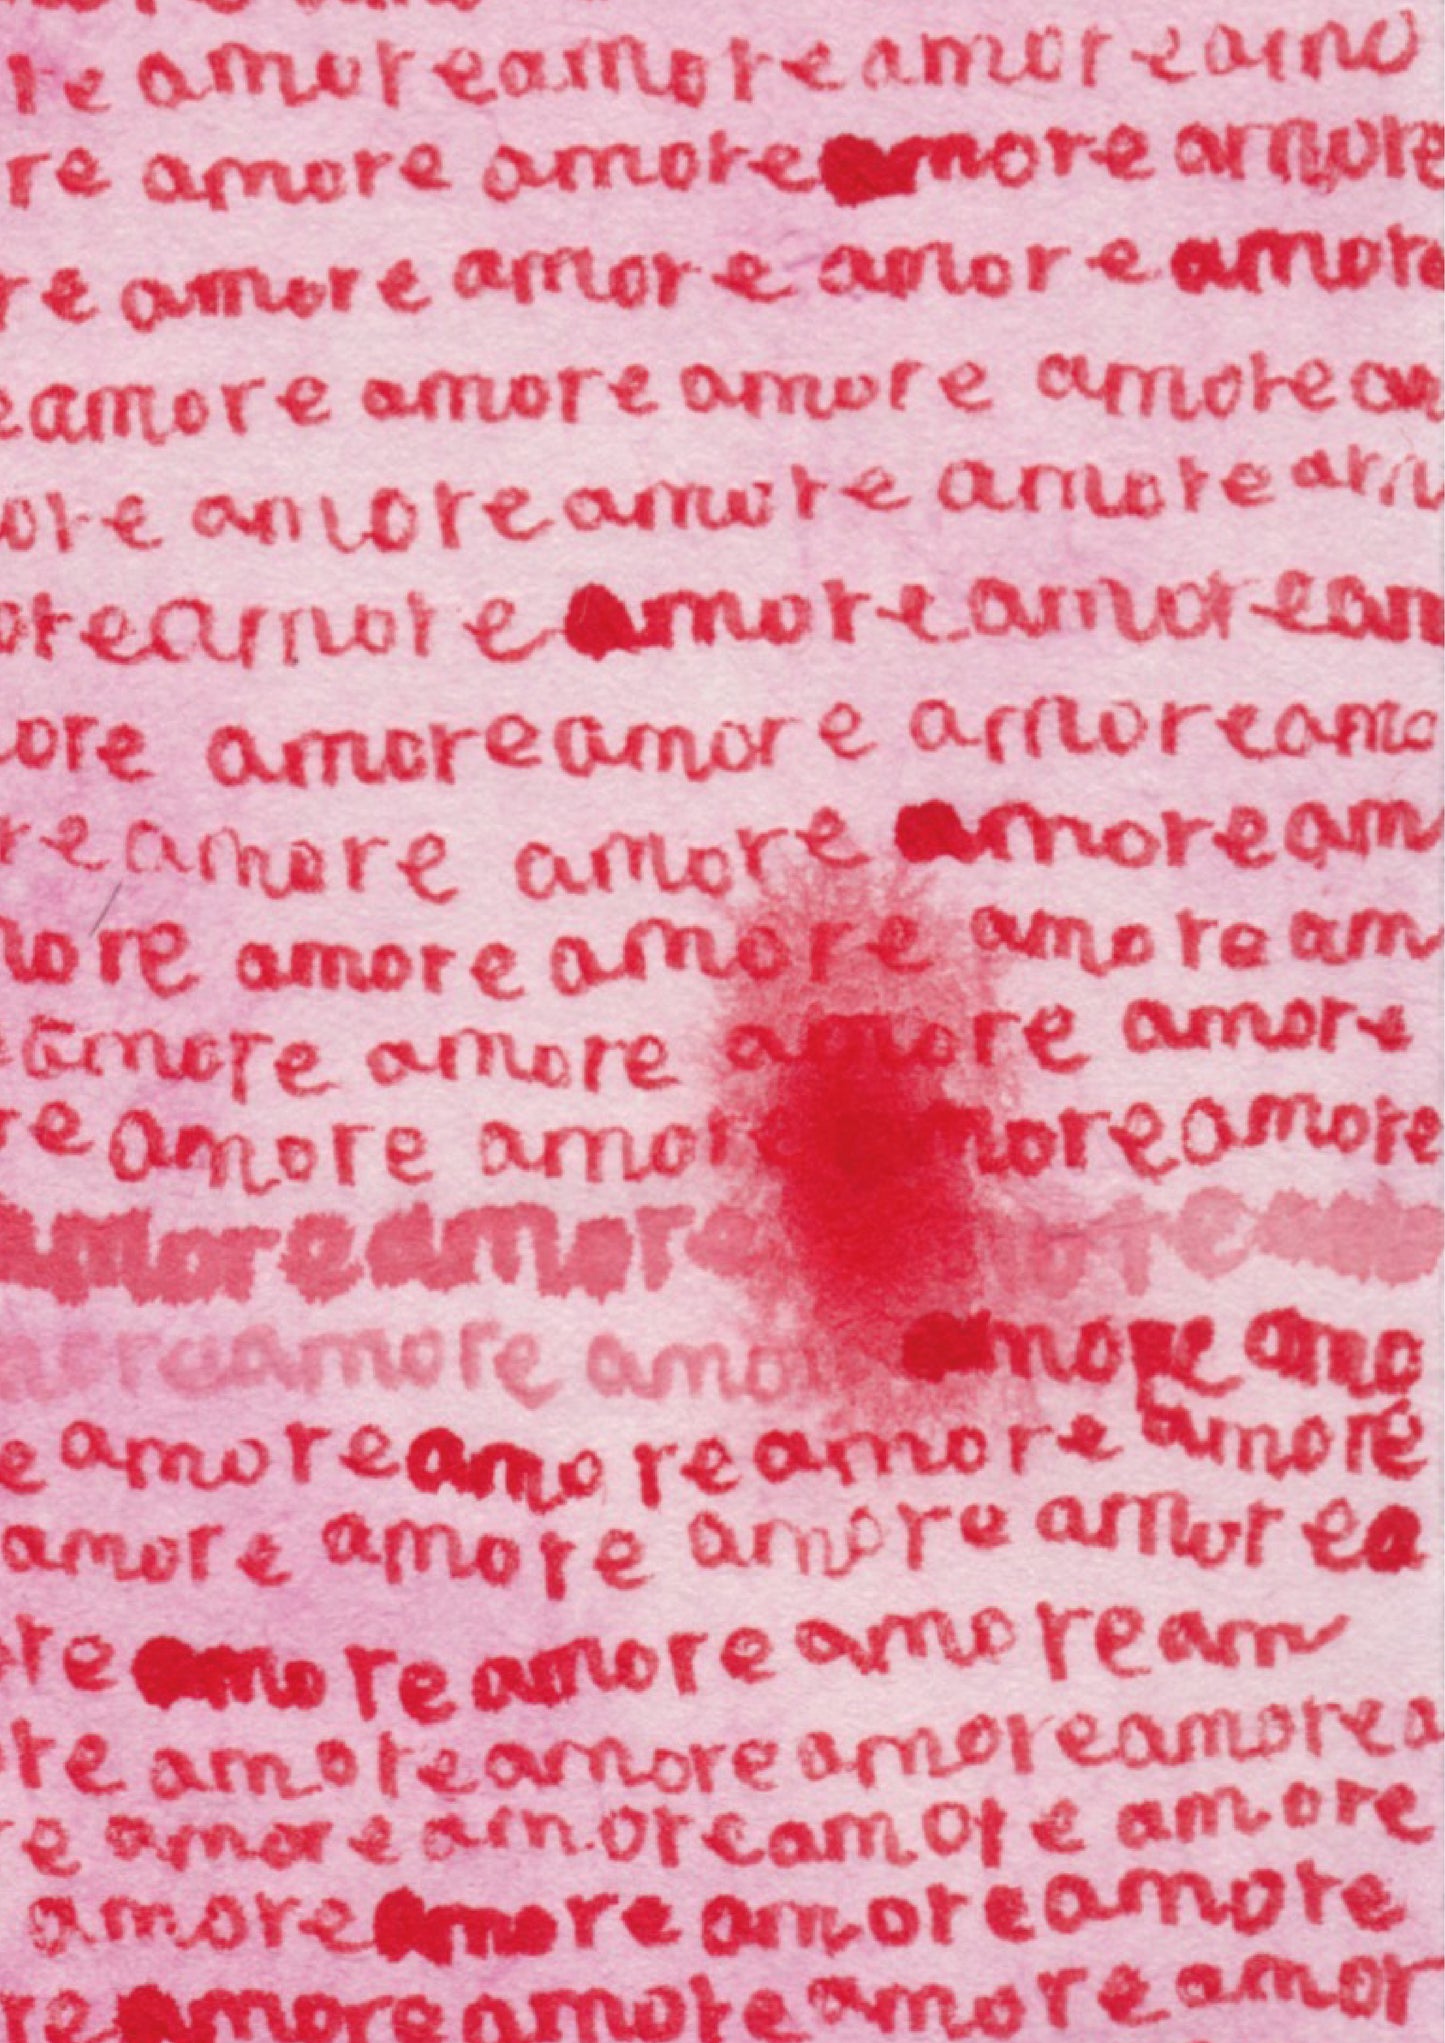 re amoreamoreamoreamo
re amore amoreamore amore
re amore amore amore amore
eamore amore amore amoream
ore amoreamore amore am
oreamore amoreamoream
ore amoreamore amoreamo
reamore amore amoream
more amore amore amoream
amore amore amore amore
re amore amore amoreamore
amoreamore ore
oreamore amo amore amo
e amoreamoreamore amore
amore amore amore amorea
re amoreamore amoream
re amoreamoreamoreamorea
re amore amoreamore amore
amoreamore amoreamore
re amoreamoreamoreamor